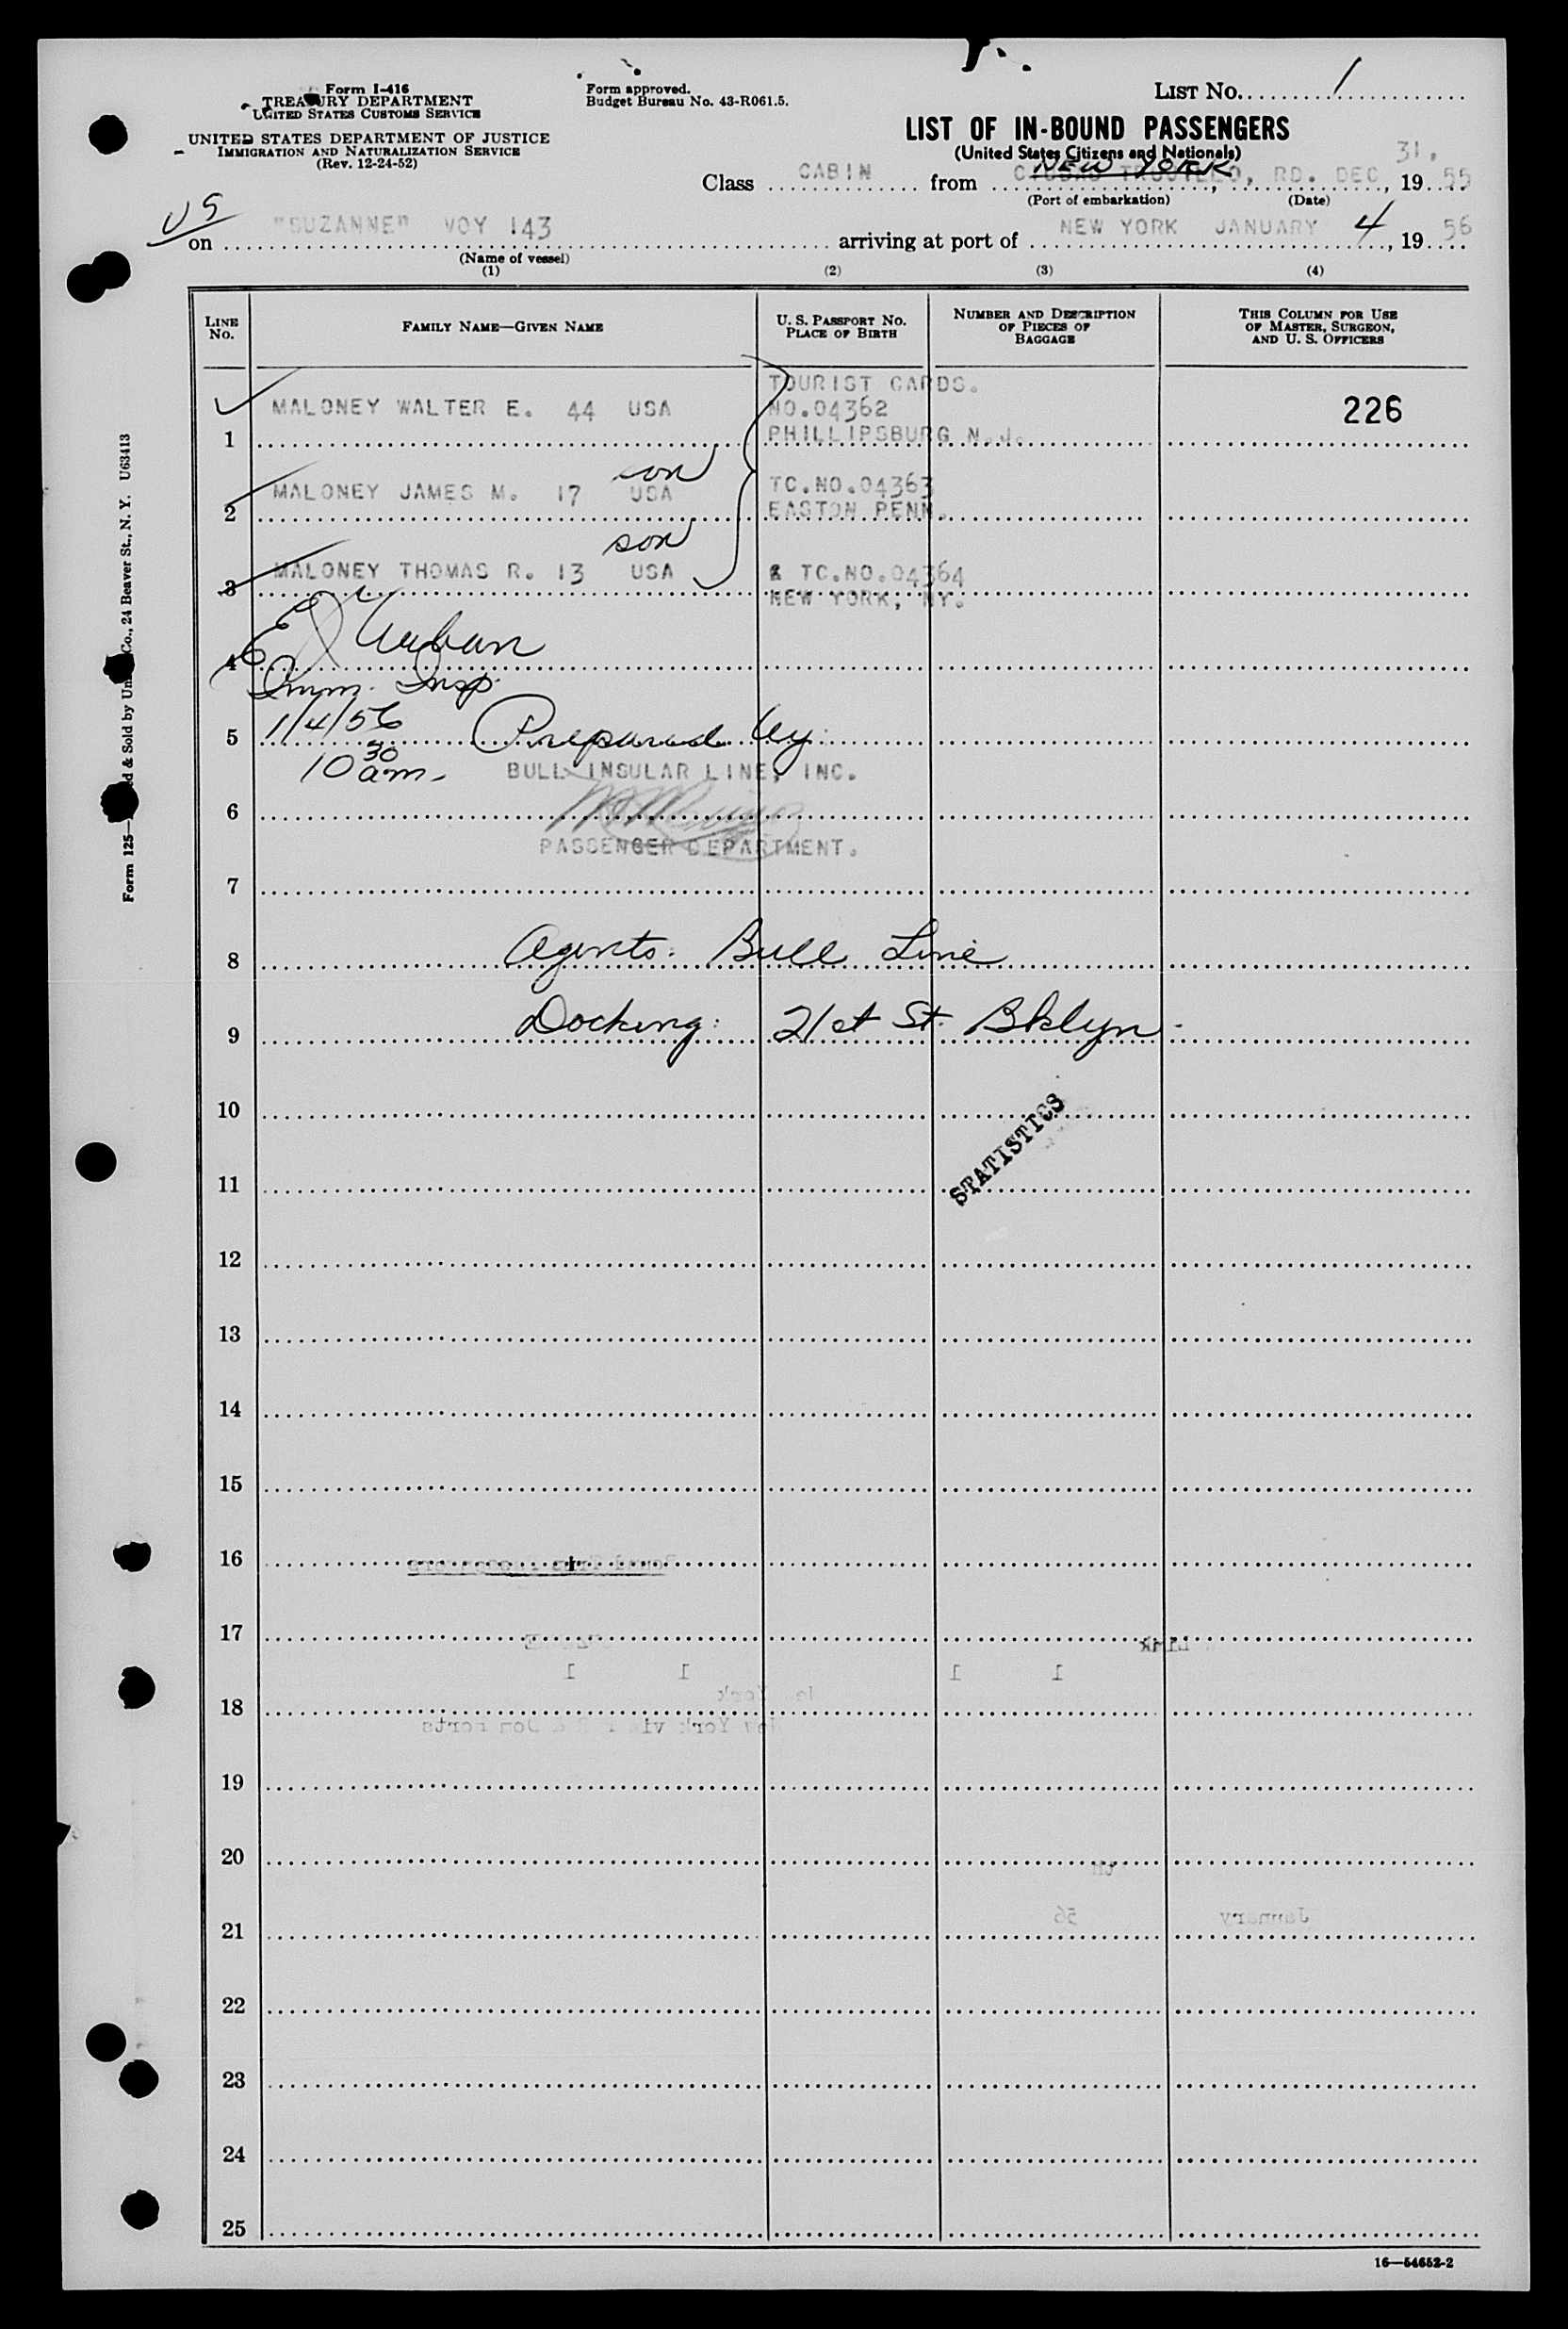 Form I-416
TREASURY DEPARTMENT
UNITED STATES CUSTOMS SERVICE
UNITED STATES DEPARTMENT OF JUSTICE
IMMIGRATION AND NATURALIZATION SERVICE
(Rev. 12-24-52)
Form approved.
Budget Bureau No. 43-R061.5.
LIST No. 1
LIST OF IN-BOUND PASSENGERS
(United States Citizens and Nationals)
Class CABIN from NEW YORK CIUDAD TRUJILLO, RD. DEC 31, 1955
(Port of embarkation) (Date)
US
on "SUZANNE" VOY 143 arriving at port of NEW YORK JANUARY 4, 1956
(Name of vessel)
(1) (2) (3) (4)
LINE No. FAMILY NAME—GIVEN NAME U. S. PASSPORT No. PLACE OF BIRTH NUMBER AND DESCRIPTION OF PIECES OF BAGGAGE THIS COLUMN FOR USE OF MASTER, SURGEON, AND U. S. OFFICERS
TOURIST CARDS.
1 MALONEY WALTER E. 44 USA NO.04362 226
PHILLIPSBURG N.J.
son
2 MALONEY JAMES M. 17 USA TC.NO.04363
EASTON PENN.
son
3 MALONEY THOMAS R. 13 USA & TC.NO.04364
NEW YORK, NY.
4 E J Urban
Imm. Insp.
5 1/4/56 Prepared by:
10 30 am. BULL INSULAR LINE, INC.
6
PASSENGER DEPARTMENT.
7
8 Agents: Bull Line
9 Docking: 21st St. Bklyn.
10
STATISTICS
11
12
13
14
15
16
17
18
19
20
21
22
23
24
25
16—54652-2
Form 125— & Sold by Co., 24 Beaver St., N. Y. U63413